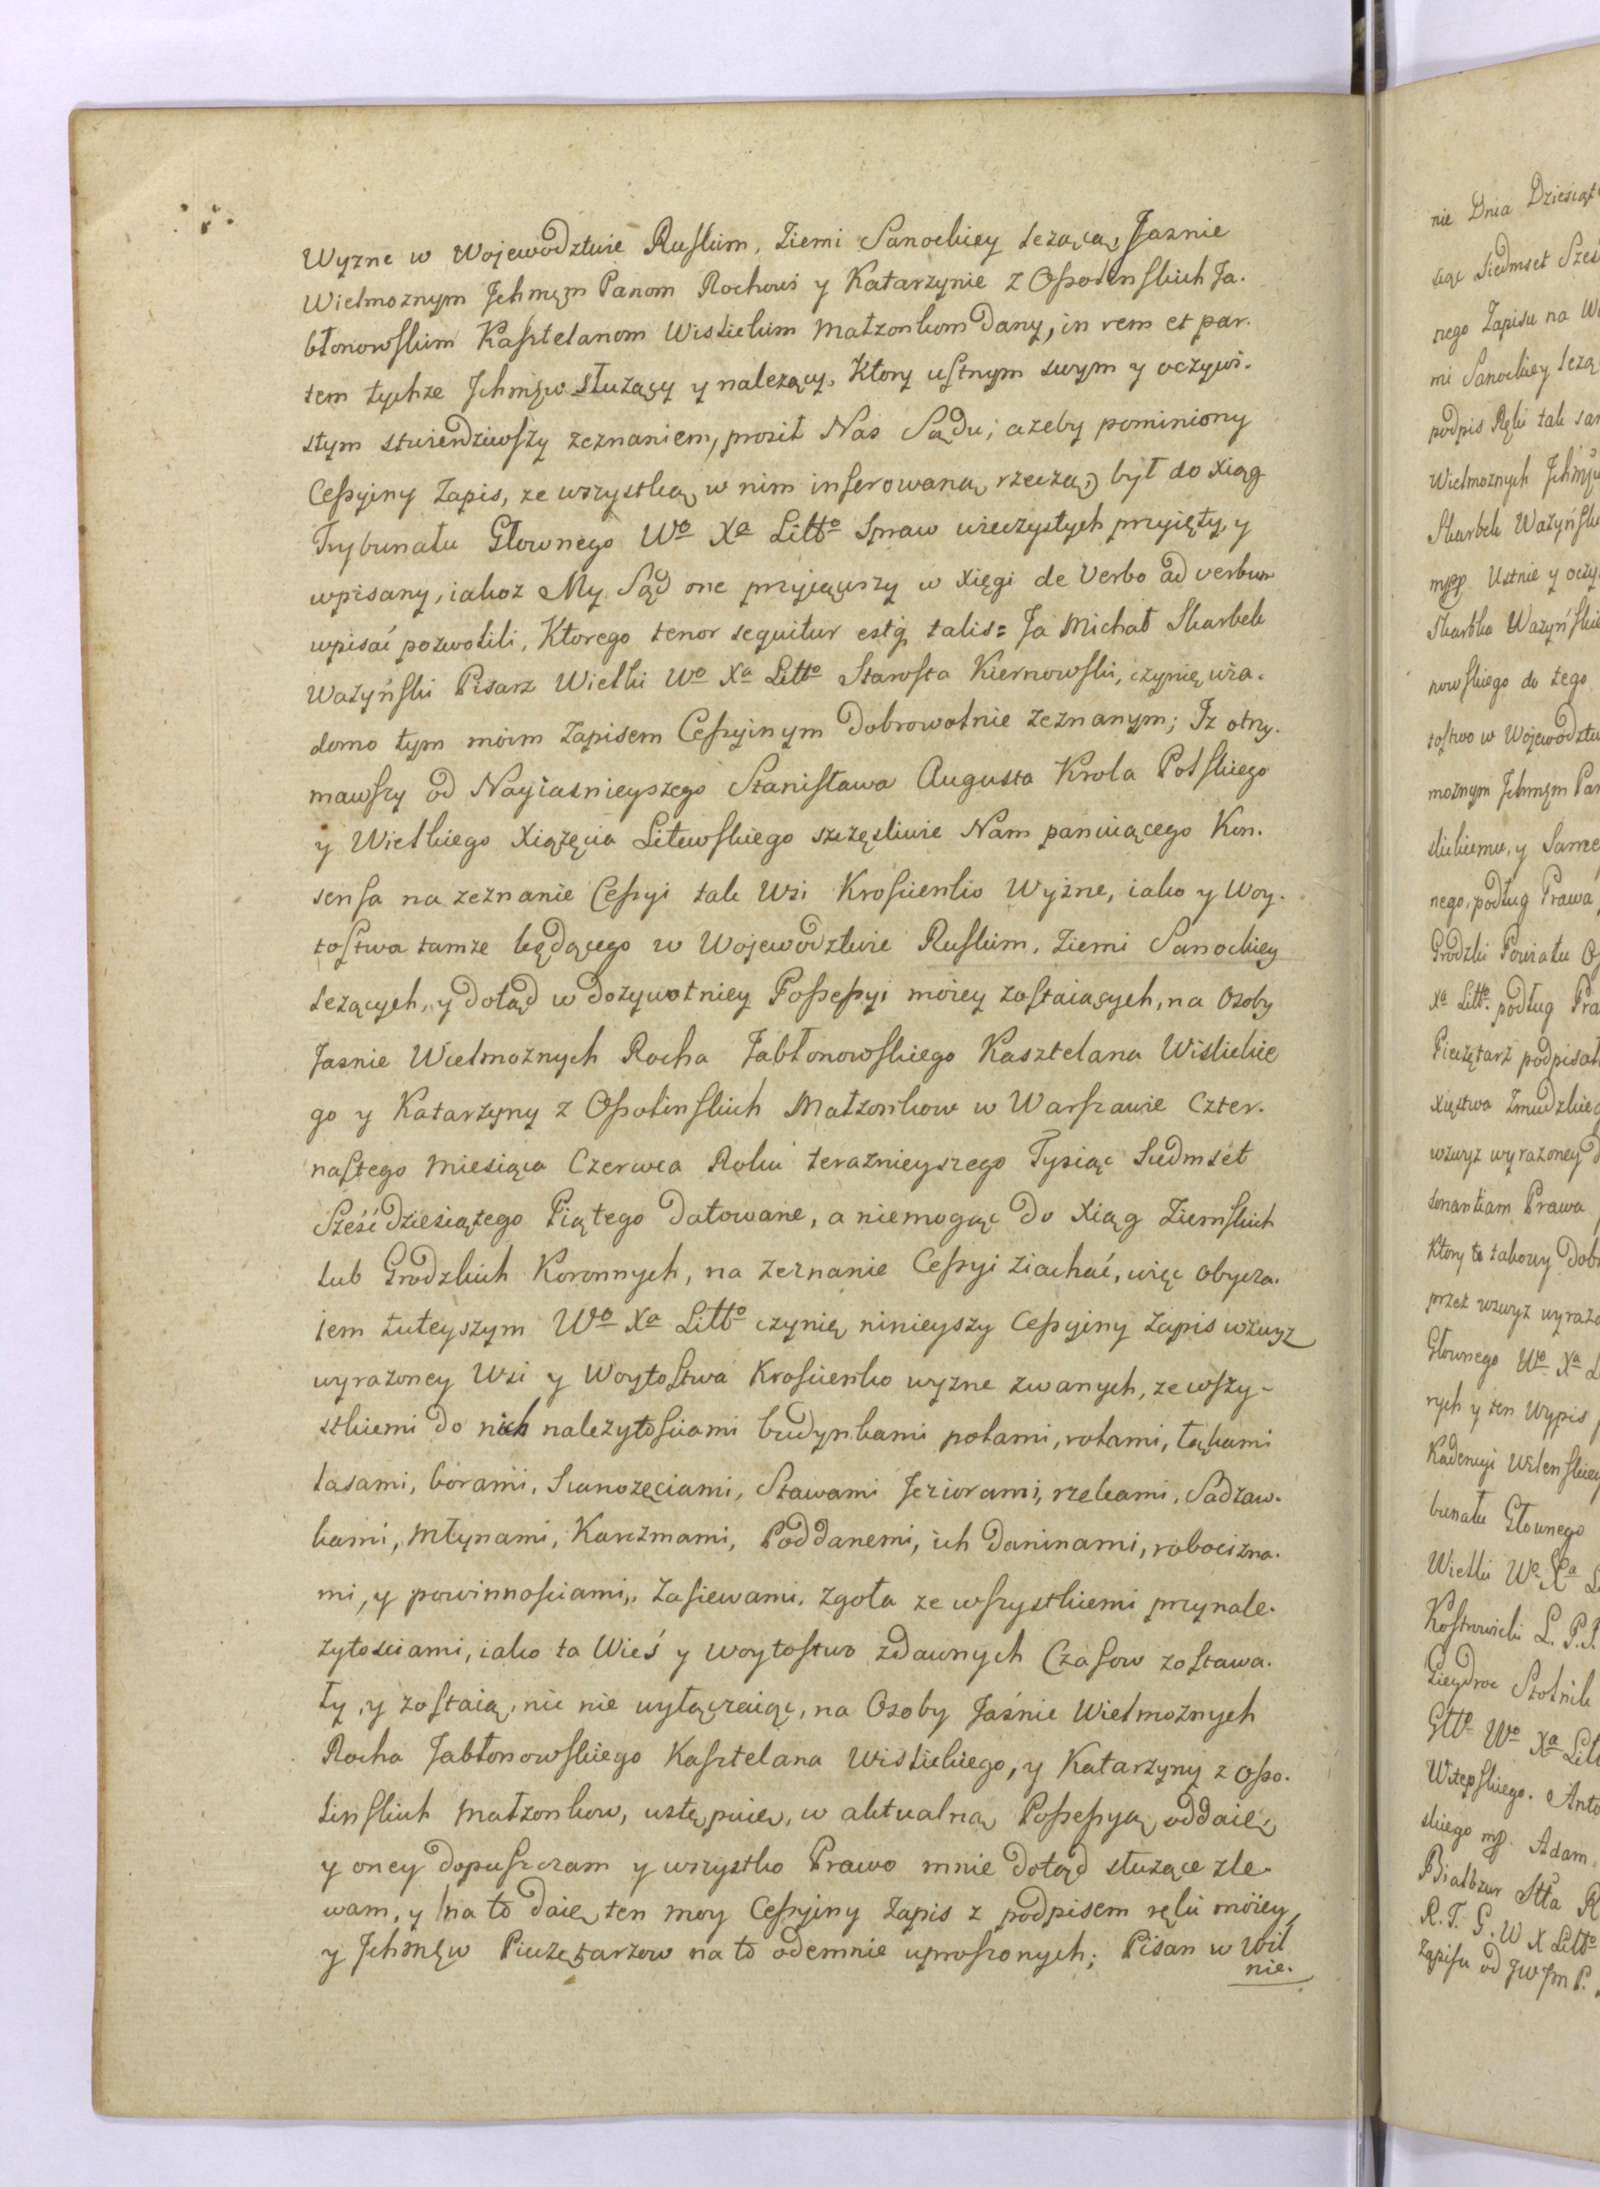 Wyzne w Wojewodztwie Ruskim, Ziemi Sanockiey leżącą, Jasnie
Wielmoznym Jchmęm Panom Rochowi y Katarzynie z Ossolinskich Ja-
błonowskim Kasztelanom Wislickim Małzonkom Dany, in rem et par-
tem tychze Jchmęw słuzący y nalezący, Ktory ustnym swym y oczywi-
stym stwierdziwszy zeznaniem, prosił Nas Sądu; azeby pominiony
Cessyiny Zapis, ze wszystką w nim inserowaną rzeczą, był do Xiąg
Trybunału Głownego Wo Xa Litto Spraw wieczystych przyięty, y
wpisany, iakoz My Sąd one przyiąwszy w Xięgi de Verbo ad verbum
wpisać pozwolili, Ktorego tenor sequitur estq talis = Ja Michał Skarbek
Ważyński Pisarz Wielki Wo Xa Litto Starosta Kiernowski, czynię wia-
domo tym moim Zapisem Cessyinym Dobrowolnie zeznanym; Iz otrzy-
mawszy od Nayiasnieyszego Stanisława Augusta Krola Polskiego
y Wielkiego Xiążęcia Litewskiego szczęsliwie Nam panuiącego Kon-
sensa na zeznanie Cessyi tak Wsi Krosiienko Wyżne, iako y Woy-
tostwa tamze będącego w Wojewodztwie Ruskim, Ziemi Sanockiey
lezących, y dotąd w dozywotniey Possessyi moiey zostaiących, na Osoby
Jasnie Wielmoznych Rocha Jabłonowskiego Kasztelana Wislickie
go y Katarzyny z Ossolinskich Małzonkow w Warszawie Czter-
nastego Miesiąca Czerwca Roku teraznieyszego Tysiąc Siedmset
Sześćdziesiątego Piątego Datowane, a niemogąc do Xiąg Ziemskich
lub Grodzkich Koronnych, na zeznanie Cessyi ziachać, więc obycza-
iem tuteyszym Wo Xa Litto czynię ninieyszy Cessyiny Zapis wzwyz
wyrazoney Wsi y Woytostwa Krosiienko wyzne zwanych, ze wszy-
stkiemi do nich nalezytosciami budynkami polami, rolami, łąkami
lasami, borami, Sianozęciami, Stawami Jeziorami, rzekami, Sadzaw-
kami, Młynami, Karczmami, Poddanemi, ich Daninami, robocizna-
mi, y powinnosciami, Zasiewami, zgoła ze wszystkiemi przynale-
zytosciami, iako ta Wieś y woytostwo zdawnych Czasow zostawa-
ły, y zostaią, nic nie wyłączaiąc, na Osoby Jaśnie Wielmoznych
Rocha Jabłonowskiego Kasztelana Wislickiego, y Katarzyny z Osso-
linskich Małzonkow, ustępuię, w aktualną Possessyą oddaię,
y oney dopuszczam y wszystko Prawo mnie dotąd służące zle-
wam, y na to daię ten moy Cessyiny Zapis z podpisem ręki moiey,
y Jchmęw Pieczętarzow na to odemnie uproszonych; Pisan w Wil
nie.
nie Dnia Dziesiąt
siąc Siedmset Sześ
nego Zapisu na W
mi Sanockiey leżą
podpis Ręki tak sa
Wielmoznych Jchmęw
Skarbek Ważyńsk
mpp. Ustnie y oczy
Skarbka Ważyńskie
nowskiego do tego
tostwo w Wojewodztw
moznym Jchmęm Pan
slickiemu, y Same
nego, podług Prawa
Grodzki Powiatu O
Xa Litto podług Pra
Pieczętarz podpisał
Xięstwa Zmudzkieg
wzwyz wyrazoney D
sonantiam Prawa
Ktory to takowy Dob
przez wzwyz wyrazo
Głownego Wo Xa L
nych y ten Wypis
Kadencyi Wilenskiey
bunału Głownego
Wielki Wo Xa L
Kostrowicki L. P. I.
Giedroc Stolnik
Gtto Wo Xa Litt
Witepskiego. Anto
skiego mp. Adam
Białozur Stta R
R. T. G. W X Litto
Zapisu od JWJm P.